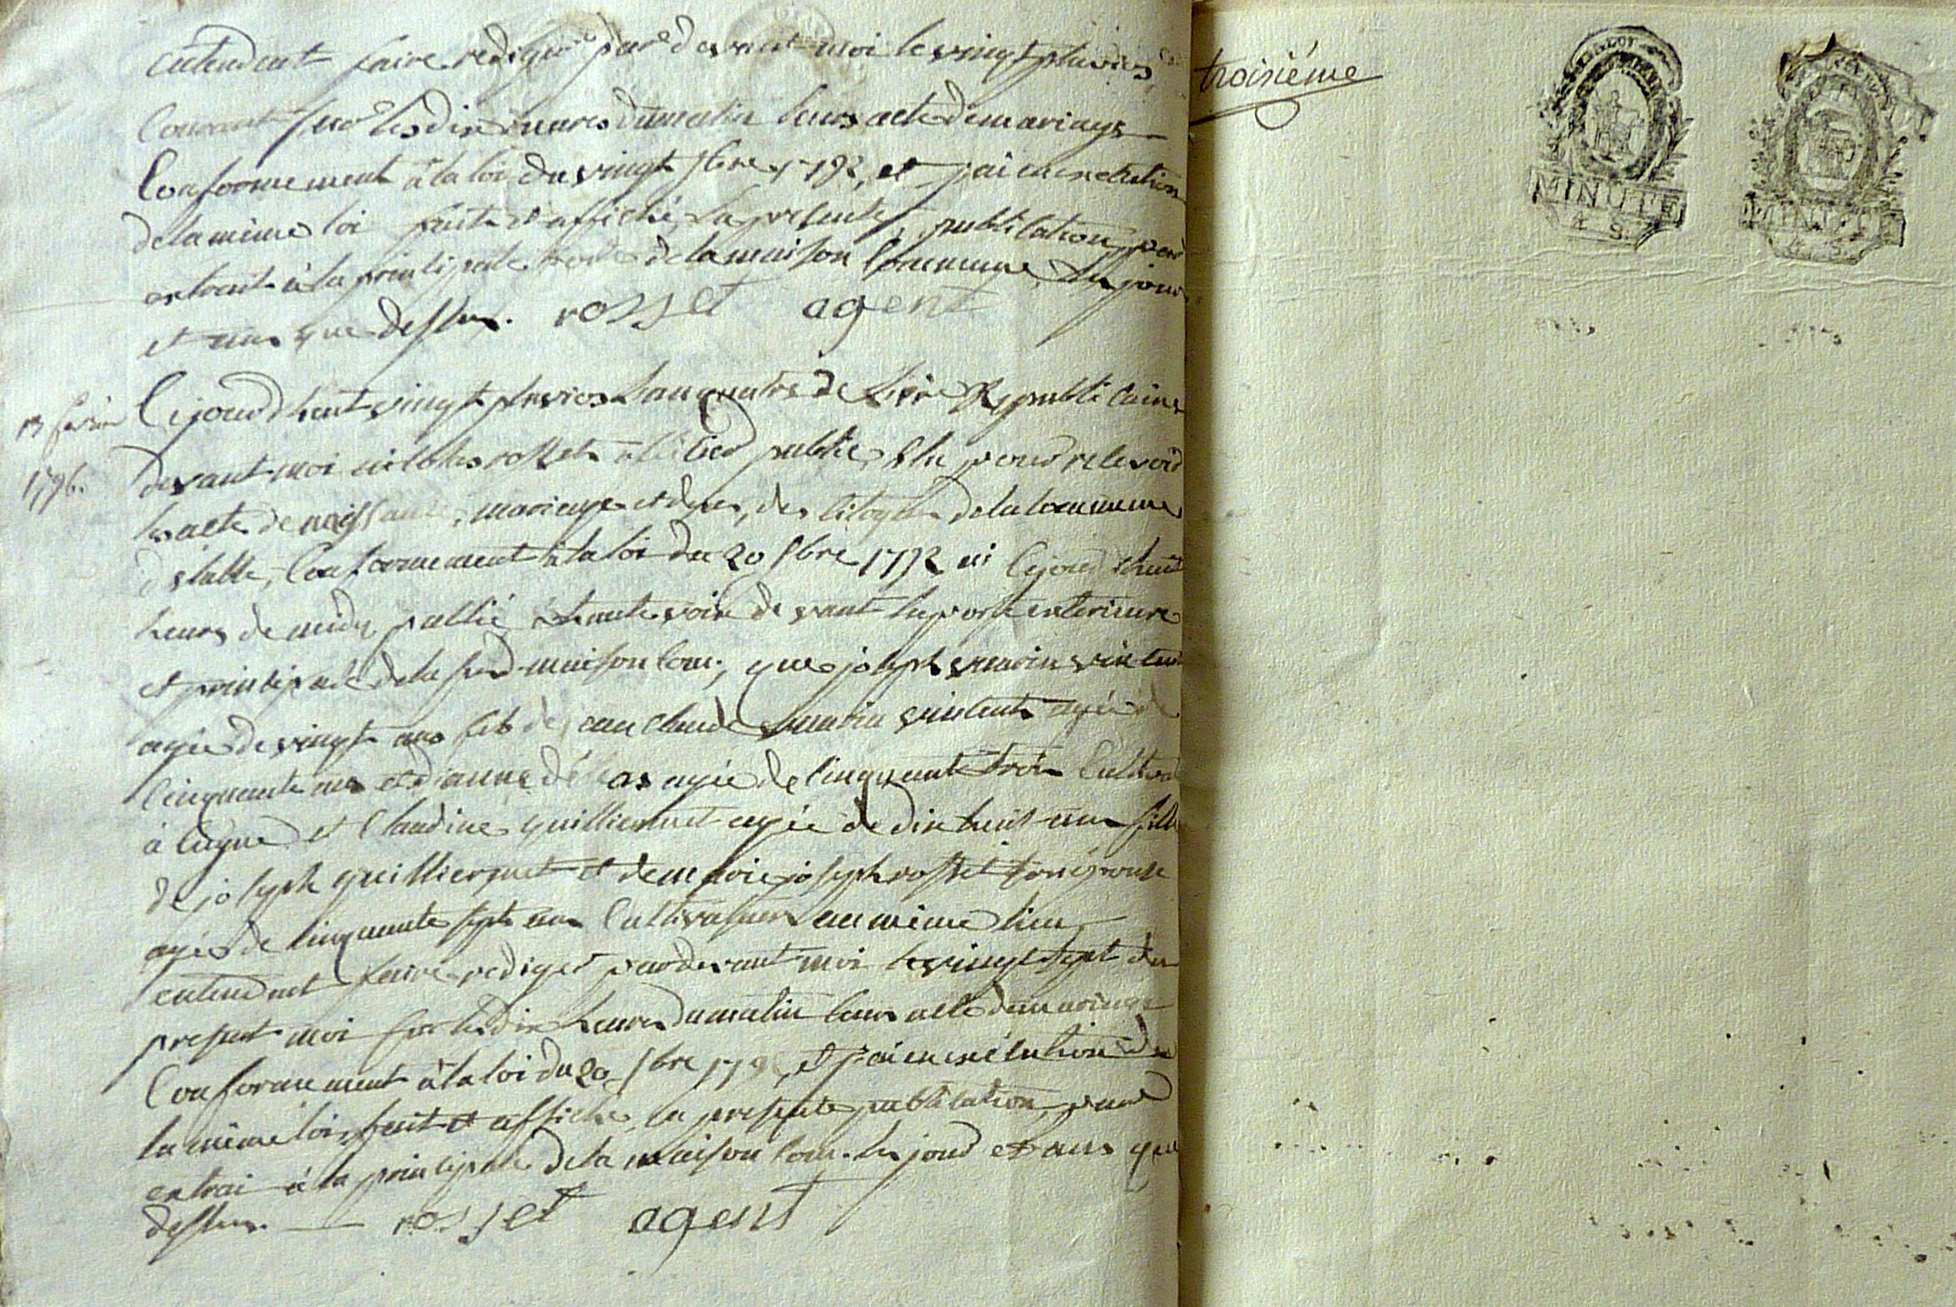 entendent faire rediger pard devant moi le vingt pluvios
Courant sur les dix heures du matin leurs acte de mariage
Conformement à la loi du vingt 7bre 1792, et j'ai en execution
de la même loi fait et affiché la presente publication, par
extrait à la principale porte de la maison Commune, les jour
et ans que dessus. rosset agent
13 fevrier
1796.
Cejourd'huit vingt pluvios l'an quatre de l'ère Republicaine
devant moi nicolas rosset officier public, élu pour recevoir
les acte de naissance, mariage et deces, des Citoyens de la commune
Conformement à la loi du 20 7bre 1792 ai Cejourd'huit
heures de midy publié à haute voix devant la porte exterieure
et principale de la maison Com., que joseph marin vincent
agé de vingt ans fils de jean claude marin vincent agée de
Cinquante ans et d'anne agée de Cinquante trois Cultiva
à et Claudine quilliermet agée de dix huit ans fille
de joseph quilliermet et de marie joseph rosset son épouse
agés de Cinquante sept ans Cultivateurs au même lieu
entendent faire rediger pardevant moi le vingt sept du
present moi sur les dix heures du matin leurs acte de mariage
Conformement à la loi du 20 7bre 1792, et j'ai en exécution de
la même loi, fait et affiché, la presente publication, par
extrai à la principale de la maison Com. les jour et ans que
dessus. rosset agent
troisiéme
MINUTE
4 S.
MINUTE